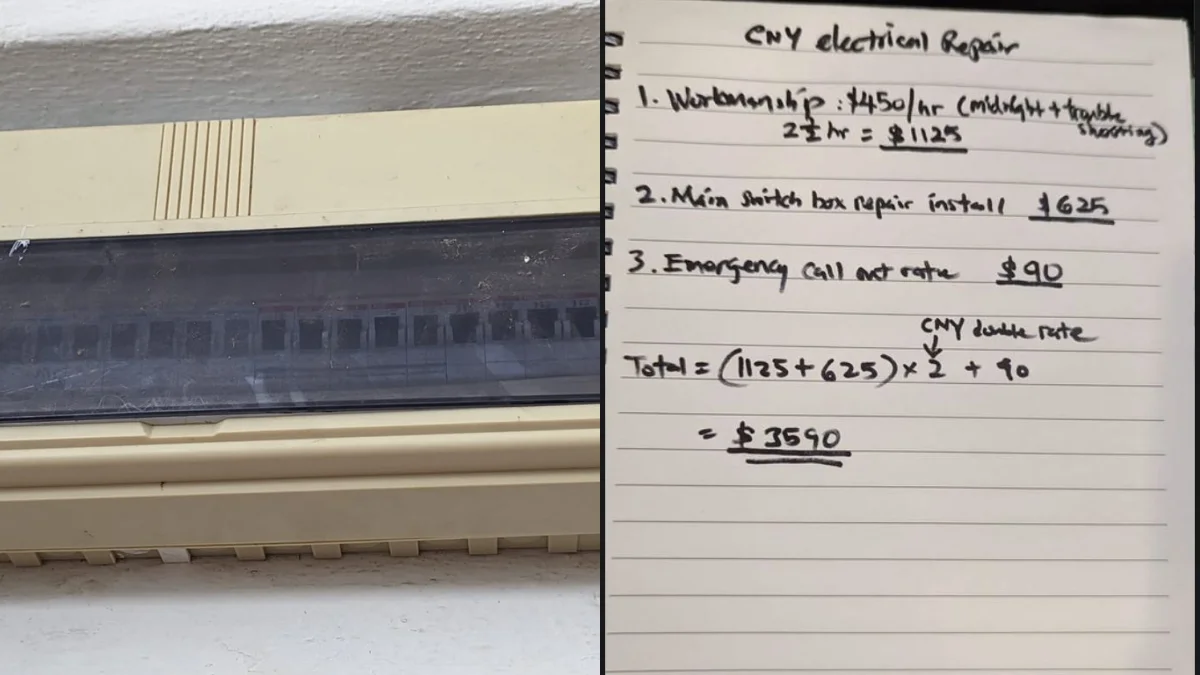 CNY electrical Repair
1. Workmanship : $450/hr (midnight + trouble shooting)
2½ hr = $1125
2. Main switch box repair install $625
3. Emergency call out rate $90
CNY double rate
Total = (1125 + 625) × 2 + 90
= $3590